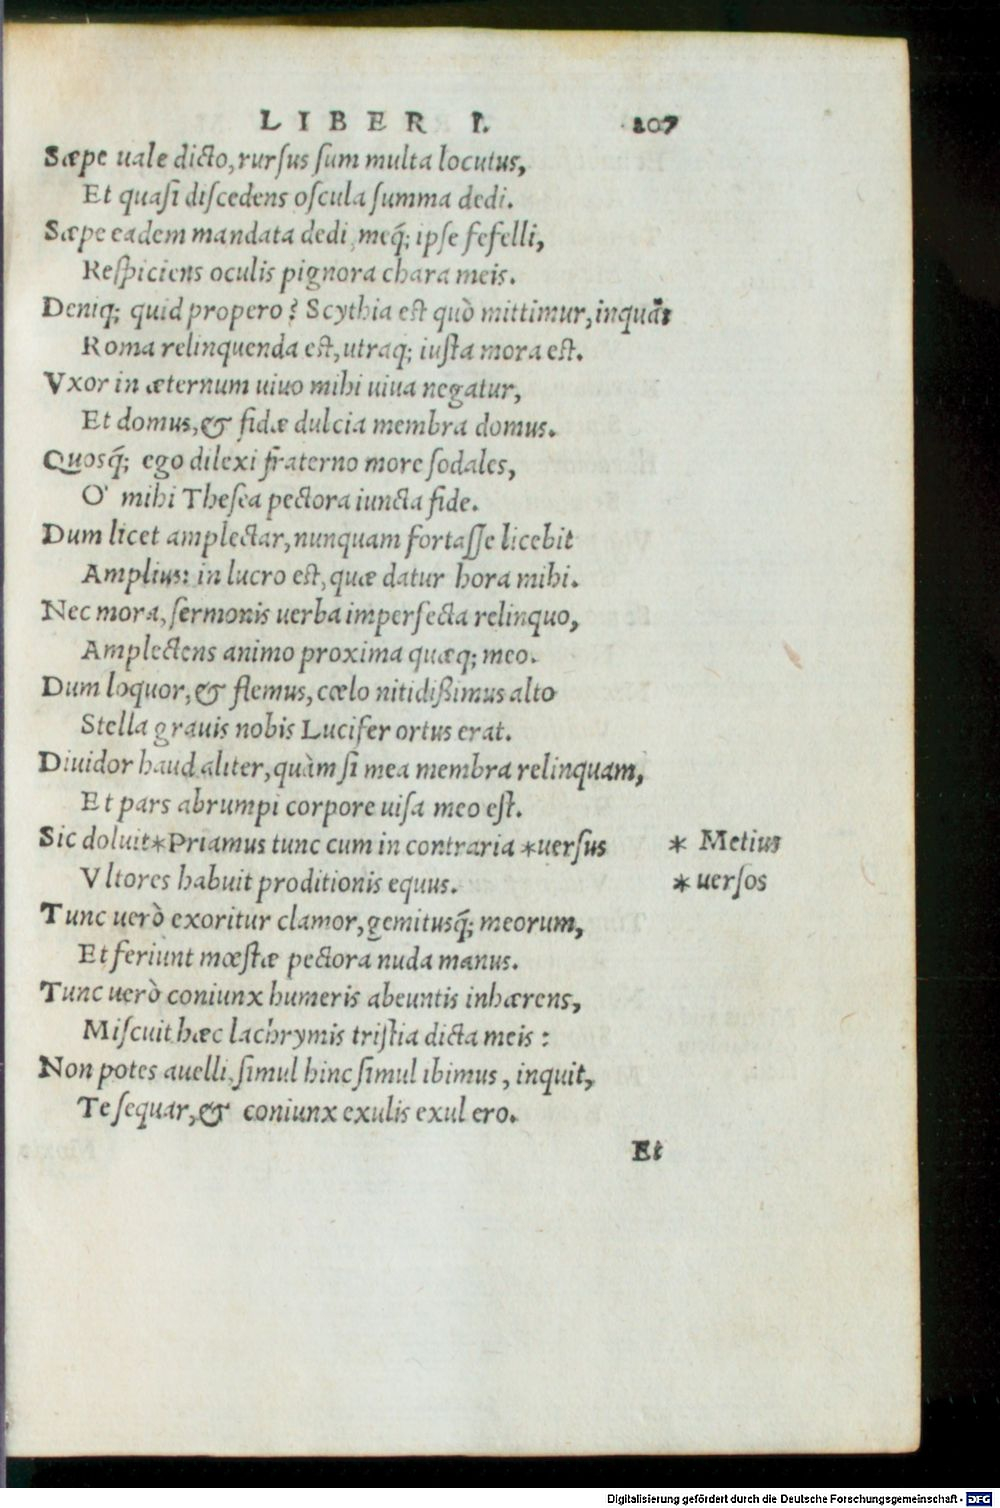 LIBER I. 207
Sæpe uale dicto, rursus sum multa locutus,
Et quasi discedens oscula summa dedi.
Sæpe eadem mandata dedi, meq́; ipse fefelli,
Respiciens oculis pignora chara meis.
Deniq; quid propero? Scythia est quò mittimur, inquã:
Roma relinquenda est, utraq; iusta mora est.
Vxor in æternum uiuo mihi uiua negatur,
Et domus, & fidæ dulcia membra domus.
Quosq́; ego dilexi fraterno more sodales,
O' mihi Thesea pectora iuncta fide.
Dum licet amplectar, nunquam fortasse licebit
Amplius: in lucro est, quæ datur hora mihi.
Nec mora, sermonis uerba imperfecta relinquo,
Amplectens animo proxima quæq; meo.
Dum loquor, & flemus, cœlo nitidißimus alto
Stella grauis nobis Lucifer ortus erat.
Diuidor haud aliter, quàm si mea membra relinquam,
Et pars abrumpi corpore uisa meo est.
Sic doluit*Priamus tunc cum in contraria *uersus * Metius
Vltores habuit proditionis equus. * uersos
Tunc uerò exoritur clamor, gemitusq́; meorum,
Et feriunt mœstæ pectora nuda manus.
Tunc uerò coniunx humeris abeuntis inhærens,
Miscuit hæc lachrymis tristia dicta meis:
Non potes auelli, simul hinc simul ibimus, inquit,
Te sequar, & coniunx exulis exul ero.
Et
Digitalisierung gefördert durch die Deutsche Forschungsgemeinschaft - DFG